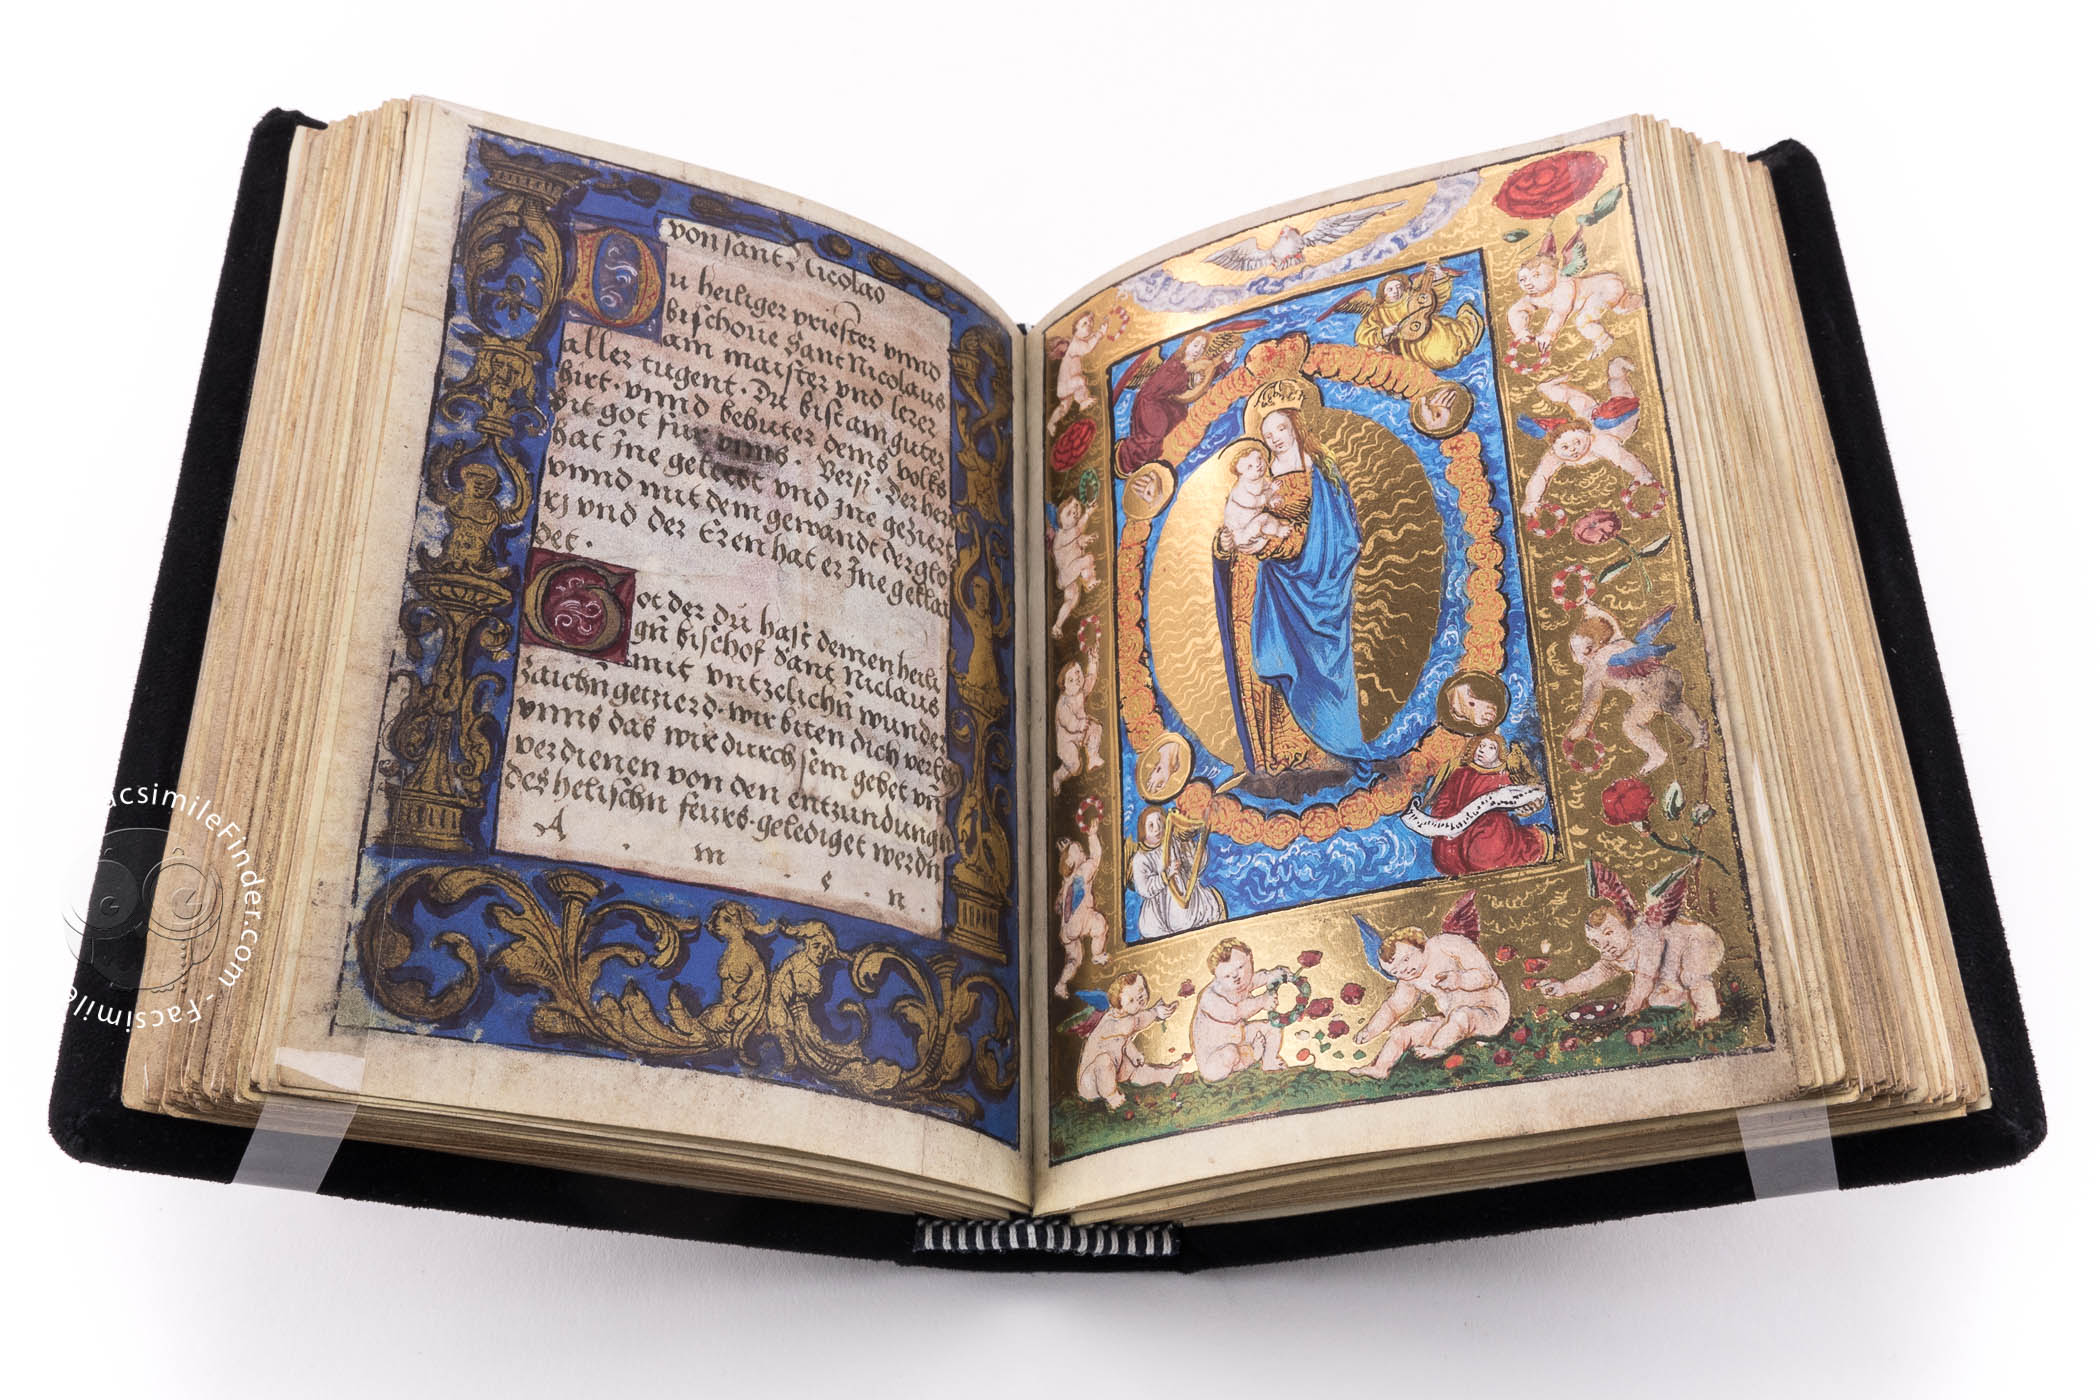 von sant Nicolao
Du heiliger priester vnnd
bischove Sant Nicolaus
am maister vnd lerer
aller tugent. Du bist am guter
hirt. vnnd behuter deins volks
bit got fur vnns. Vers. Der herr
hat jne geliebt vnd jne geziert
vnnd mit dem gewandt der glo
rj vnd der Eren hat er jne geklai
det.
Got der du hast deinen heili
gn bischof Sant Niclaus
mit vntzelichn wunder
zaichn getzierd. wir biten dich verleich
vnns das wir durch sein gebet vn
verdienen von den entzundungn
des helischn feurs. gelediget werdn
A . m . e . n .
FacsimileFinder.com - Facsimile